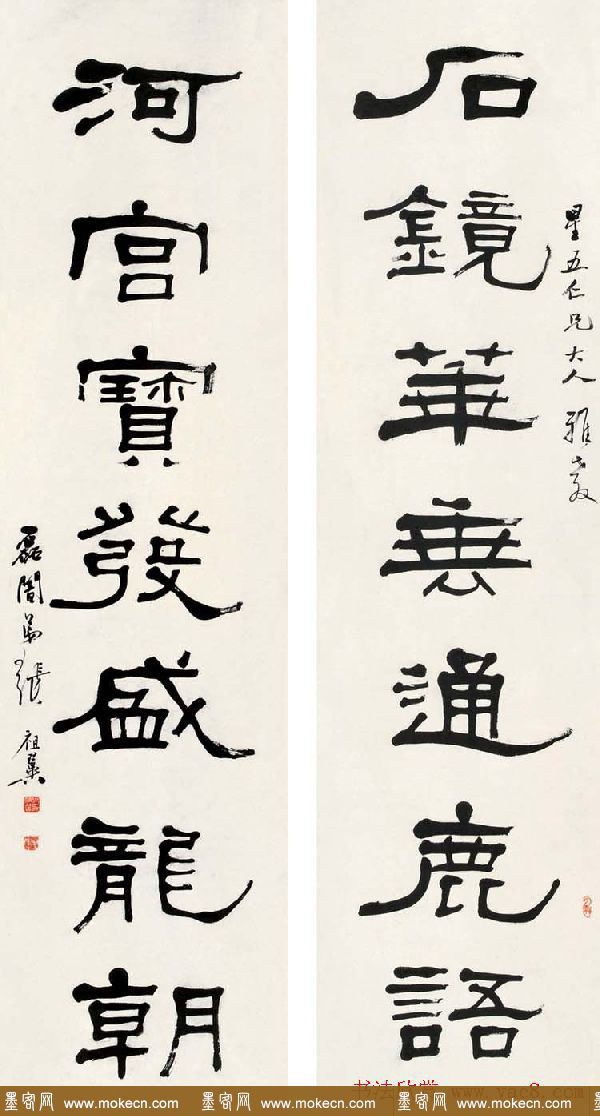 石鏡華無通鹿語
星五仁兄大人雅教
河宮寶發盛龍朝
磊闇弟張祖翼
书法欣赏 www.yac8.com
墨客网 www.mokecn.com 墨客网 www.mokecn.com 墨客网 www.mokecn.com